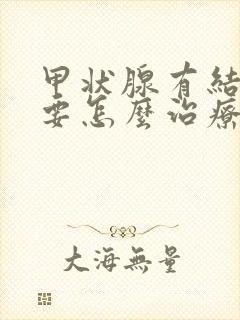 甲狀腺有結
要怎麼治療
大海無量